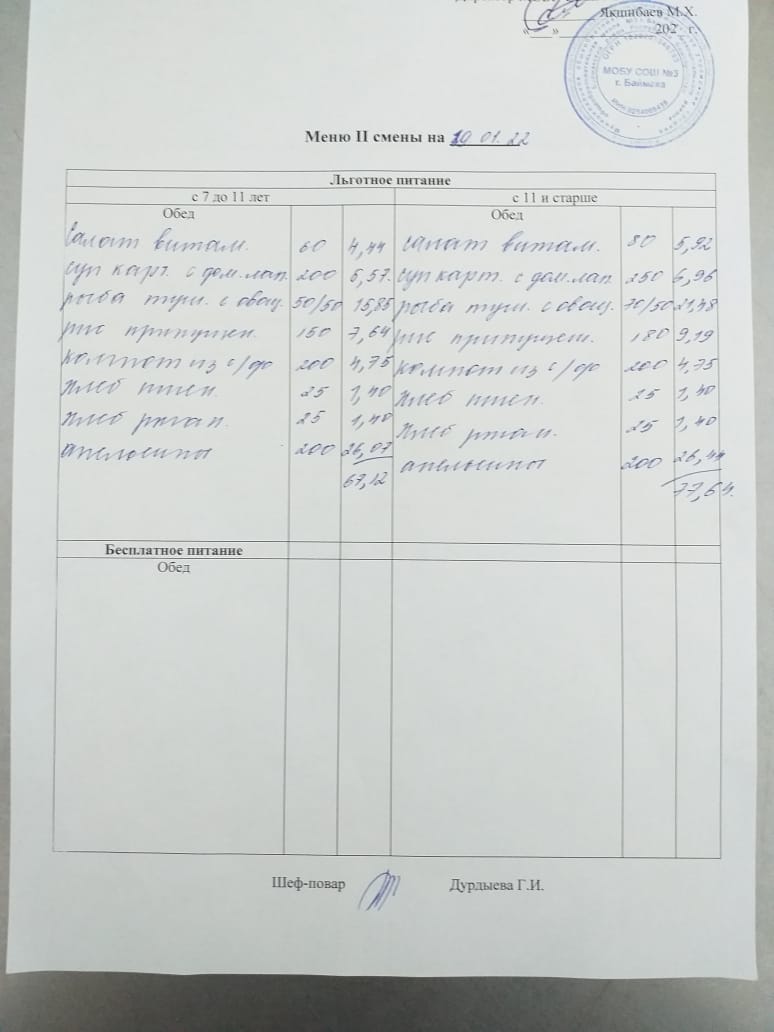 Якшибаев М.Х.
«___»____________202 г.
МОБУ СОШ №3
г. Баймака
Меню II смены на 19 01. 22
Льготное питание
с 7 до 11 лет с 11 и старше
Обед Обед
Салат витам. 60 4,44 салат витам. 80 5,92
суп карт. с дом. лап. 200 5,57. суп карт. с дом. лап. 250 6,96
рыба туш. с овощ. 50/50 15,85 рыба туш. с овощ. 70/50 21,48
рис припущен. 150 7,64 рис припущ. 180 9,19
компот из с/фр 200 4,75 компот из с/фр 200 4,75
хлеб пшен. 25 1,40 хлеб пшен. 25 1,40
хлеб ржан. 25 1,40 хлеб ржан. 25 1,40
апельсины 200 26,07 апельсины 200 26,44
67,12 77,64.
Бесплатное питание
Обед
Шеф-повар Дурдыева Г.И.